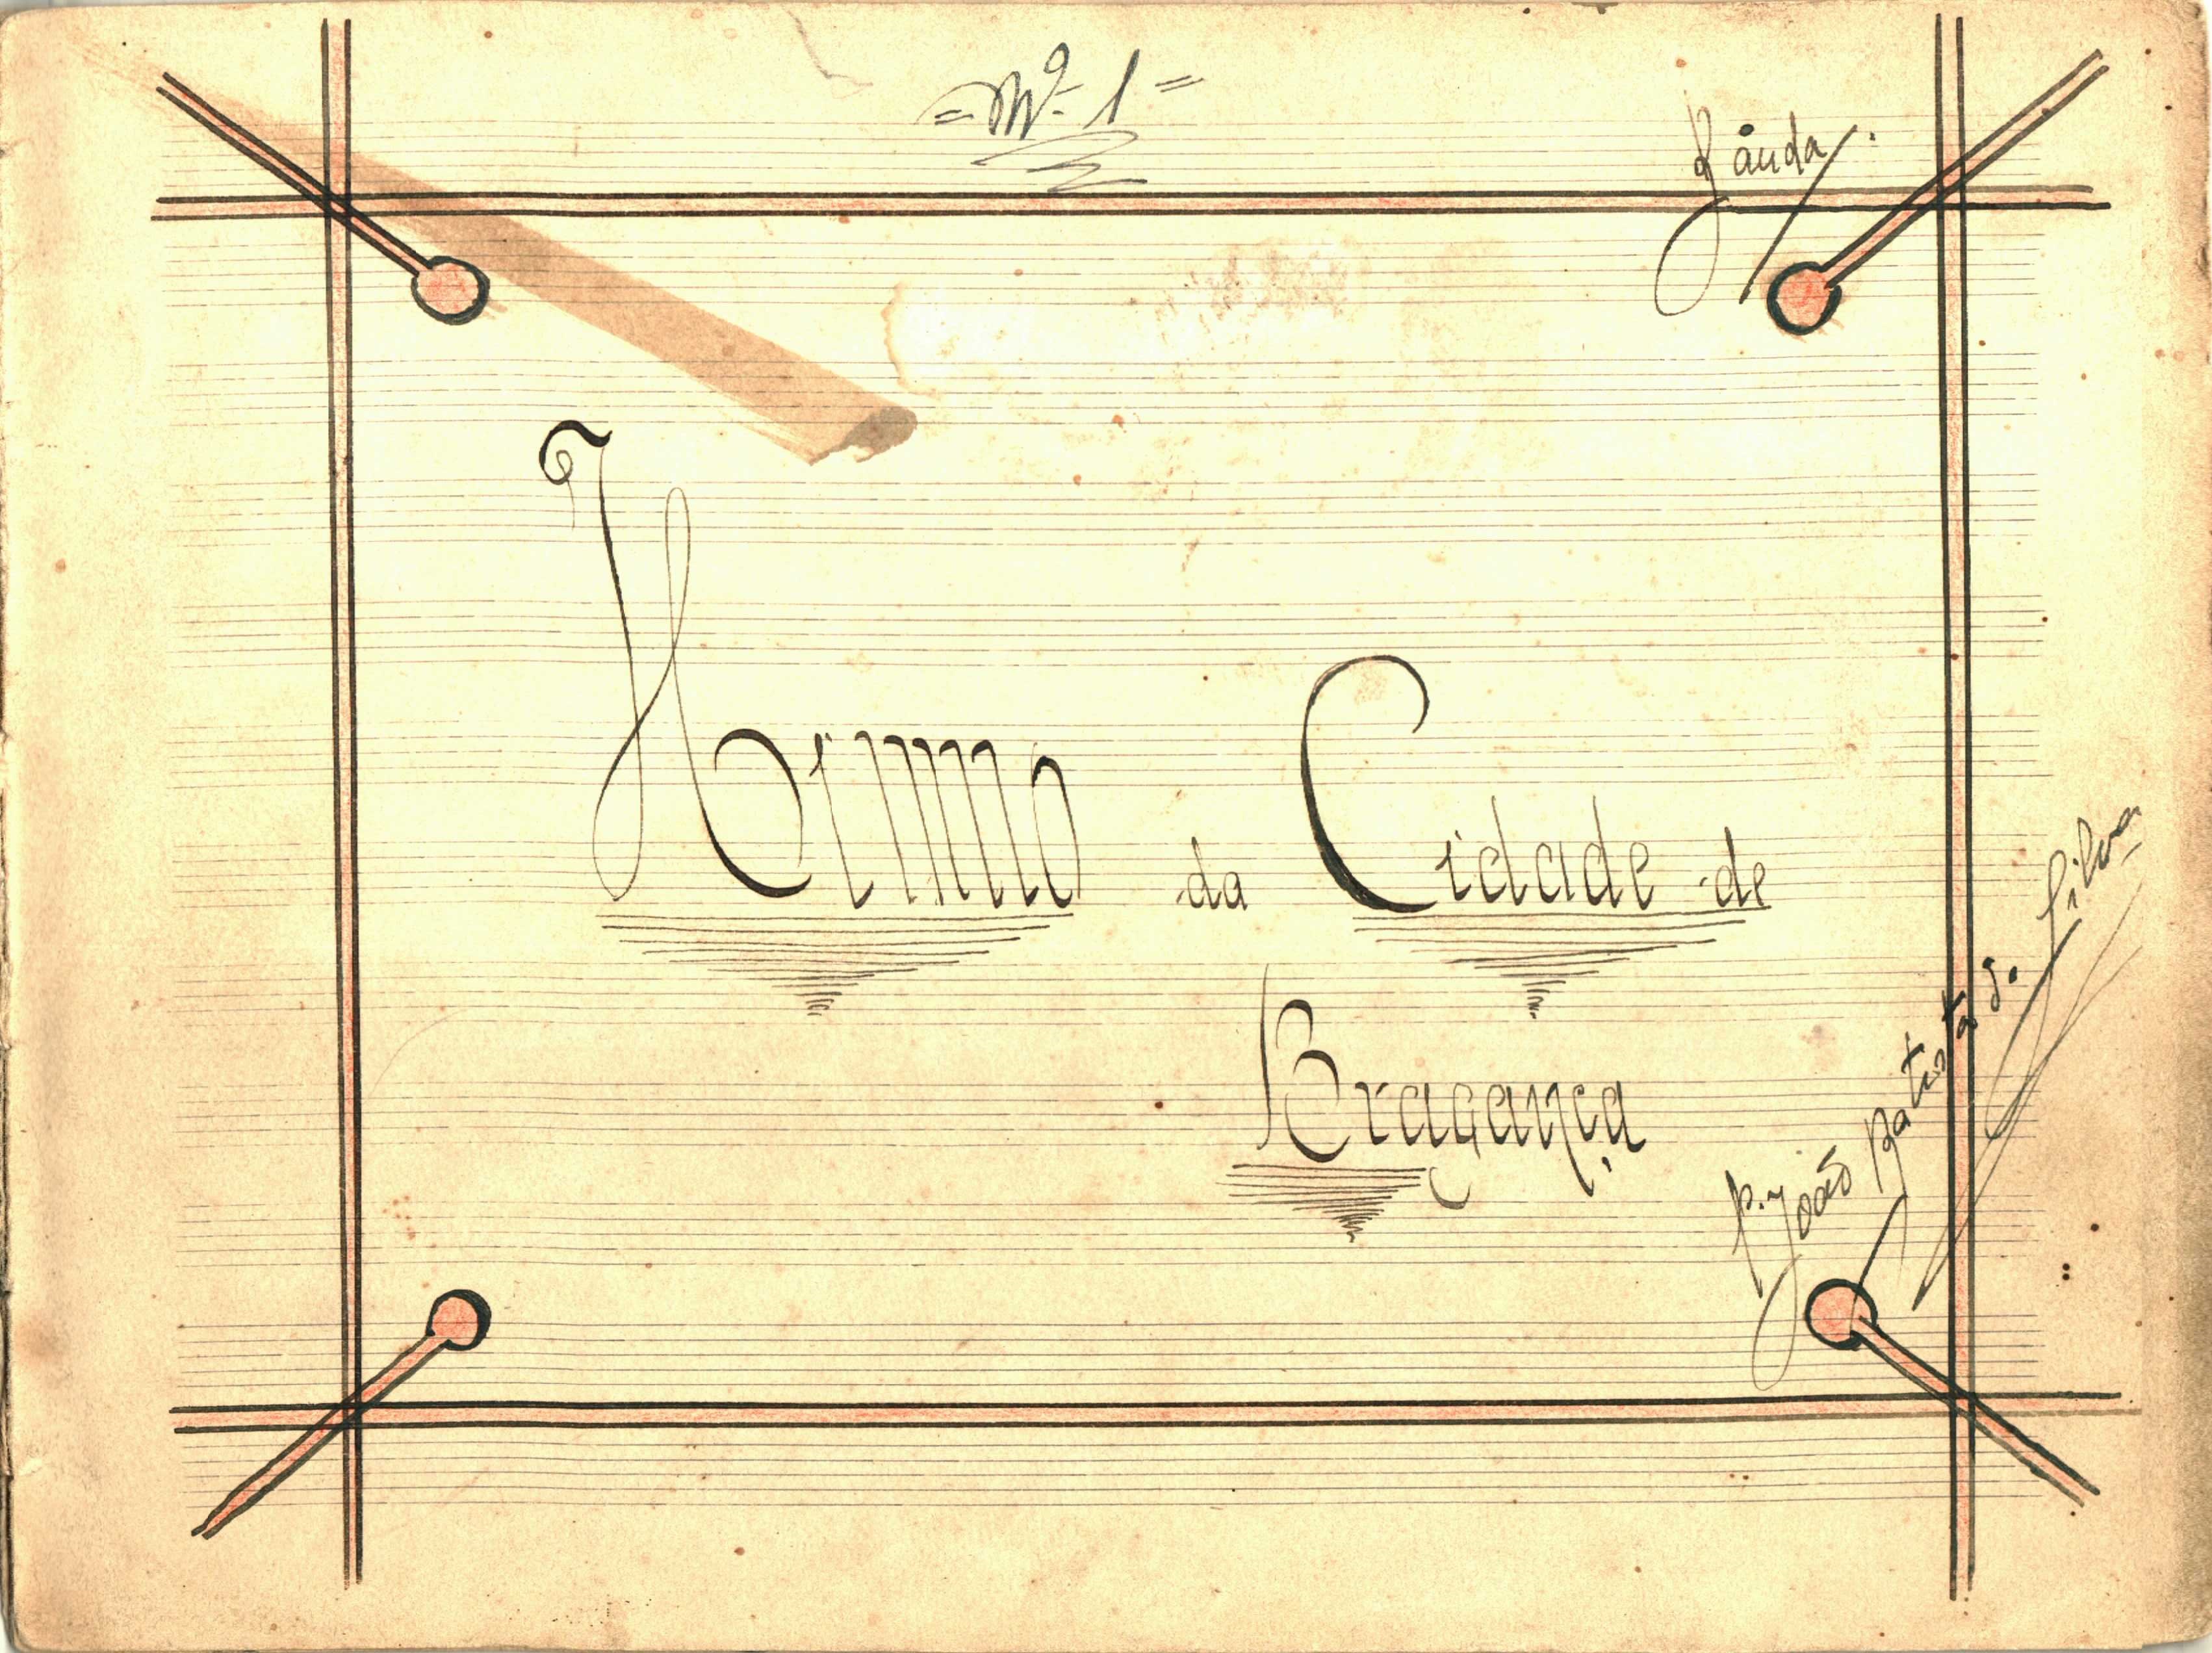 = Nº 1 =
Banda
Himno da Cidade de
Bragança
P. João Batista G. Silva